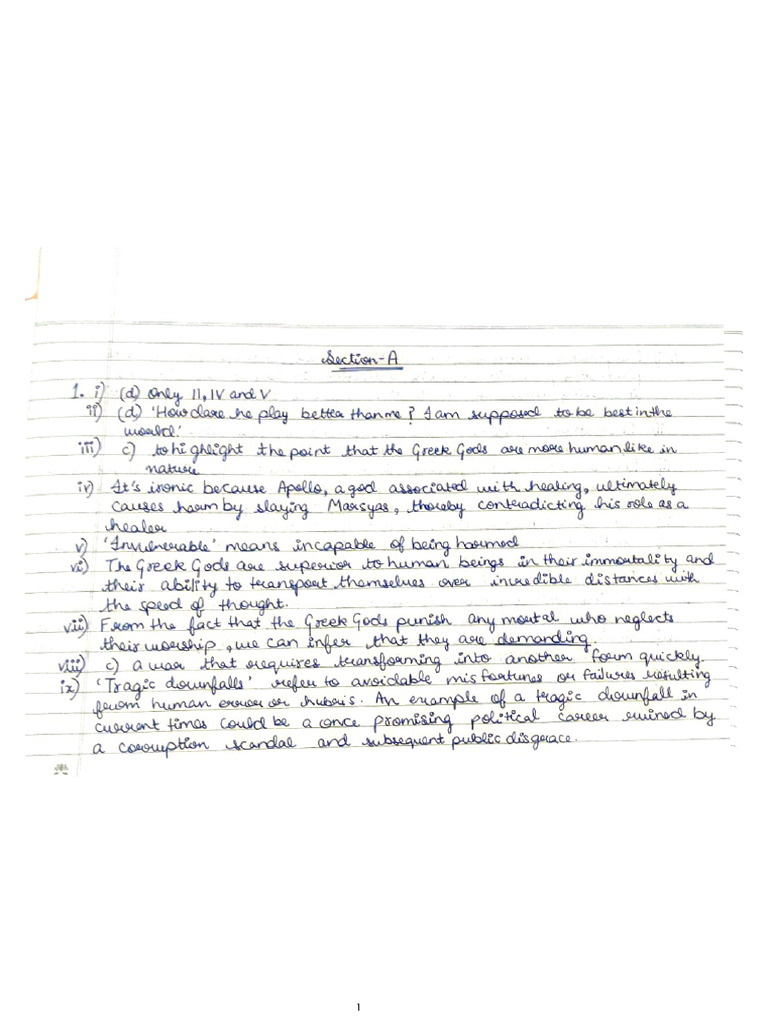 Section-A
1. i) (d) Only II, IV and V
ii) (d) 'How dare he play better than me? I am supposed to be best in the
world.'
iii) c) to highlight the point that the Greek Gods are more human like in
nature
iv) It's ironic because Apollo, a god associated with healing, ultimately
causes harm by slaying Marsyas, thereby contradicting his role as a
healer
v) 'Invulnerable' means incapable of being harmed
vi) The Greek Gods are superior to human beings in their immortality and
their ability to transport themselves over incredible distances with
the speed of thought.
vii) From the fact that the Greek Gods punish any mortal who neglects
their worship, we can infer that they are demanding.
viii) c) a war that requires transforming into another form quickly.
ix) 'Tragic downfalls' refer to avoidable misfortunes or failures resulting
from human error or hubris. An example of a tragic downfall in
current times could be a once promising political career ruined by
a corruption scandal and subsequent public disgrace.
1